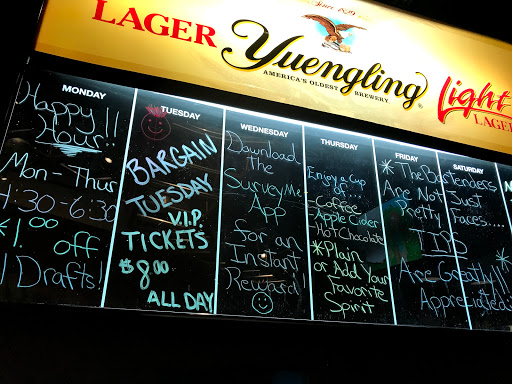 Since 1829
LAGER Yuengling Light
AMERICA'S OLDEST BREWERY
LAGER
MONDAY
Happy
Hour!!
Mon-Thur
4:30-6:30
$1.00 off
Drafts!
TUESDAY
BARGAIN
TUESDAY
V.I.P.
TICKETS
$8.00
ALL DAY
WEDNESDAY
Download
the
SurveyMe
App
for an
Instant
Reward!
THURSDAY
Enjoy a Cup
of
Coffee
Apple Cider
Hot Chocolate
*Plain
or Add Your
favorite
Spirit
FRIDAY SATURDAY
*The Bartenders
Are Not Just
Pretty Faces....
TIPS
Are Greatly
Appreciated